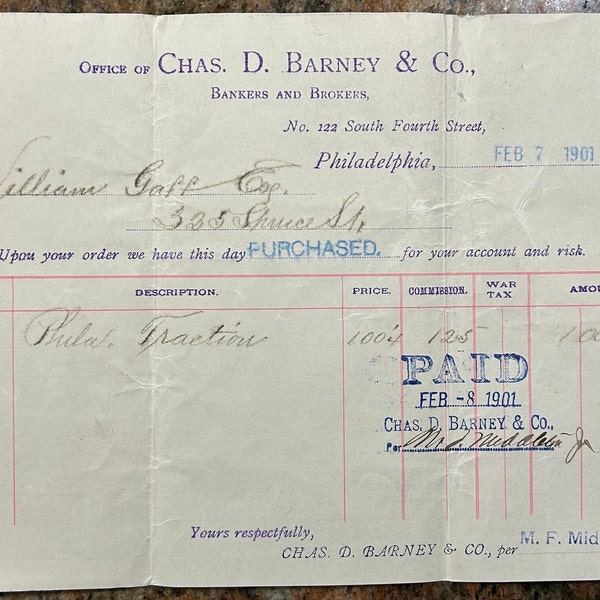 OFFICE OF CHAS. D. BARNEY & CO.,
BANKERS AND BROKERS,
No. 122 South Fourth Street,
Philadelphia, FEB 7 1901
William Esq.
325 Spruce St,
Upon your order we have this day PURCHASED. for your account and risk.
DESCRIPTION. PRICE. COMMISSION. WAR TAX AMOU
Phila. Traction 100¼ 125 100
PAID
FEB -8 1901
CHAS. D. BARNEY & CO.,
Per Middleton Jr
Yours respectfully,
CHAS. D. BARNEY & CO., per M. F. Mid